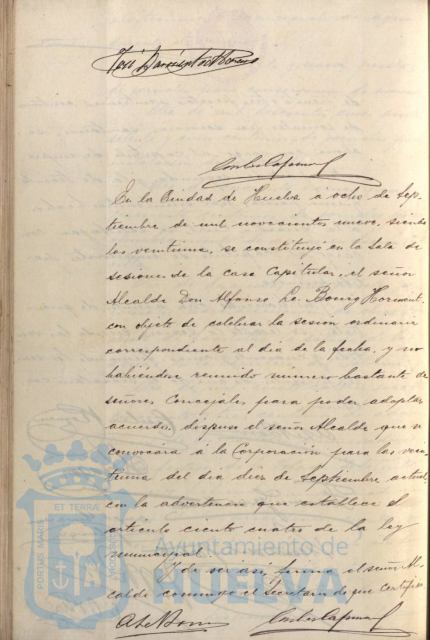 En la Ciudad de Huelva á ocho de Sep-
tiembre de mil novecientos nueve, siendo
las veintiuna, se constituyó en la Sala de
sesiones de la casa Capitular, el señor
Alcalde Don Alfonso Le Bourg
con objeto de celebrar la sesión ordinaria
correspondiente al dia de la fecha, y no
habiéndose reunido número bastante de
señores Concejales para poder adoptar
acuerdo, dispuso el señor Alcalde que se
convocara á la Corporación para las
del dia diez de Septiembre actual,
con la advertencia que establece el
artículo ciento cuatro de la ley
municipal.
Y de ser así firma el señor Al-
calde conmigo el Secretario de que certifico
PORTUS MARIS
ET TERRAE
Ayuntamiento de
HUELVA